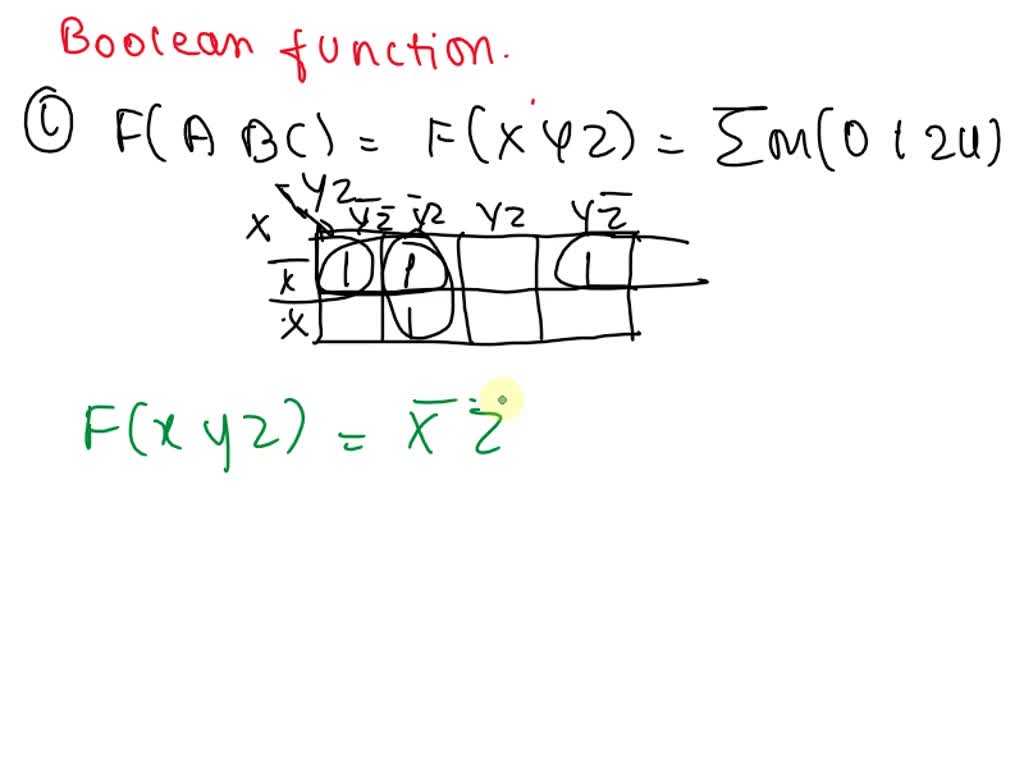 Boolean function.
① F(A BC) = F(X Y Z) = Σm(0 1 2 4)
YZ
X Y̅Z̅ Y̅Z YZ YZ̅
X̅ 1 1 1
X 1
F(x y z) = X̅ Z̅